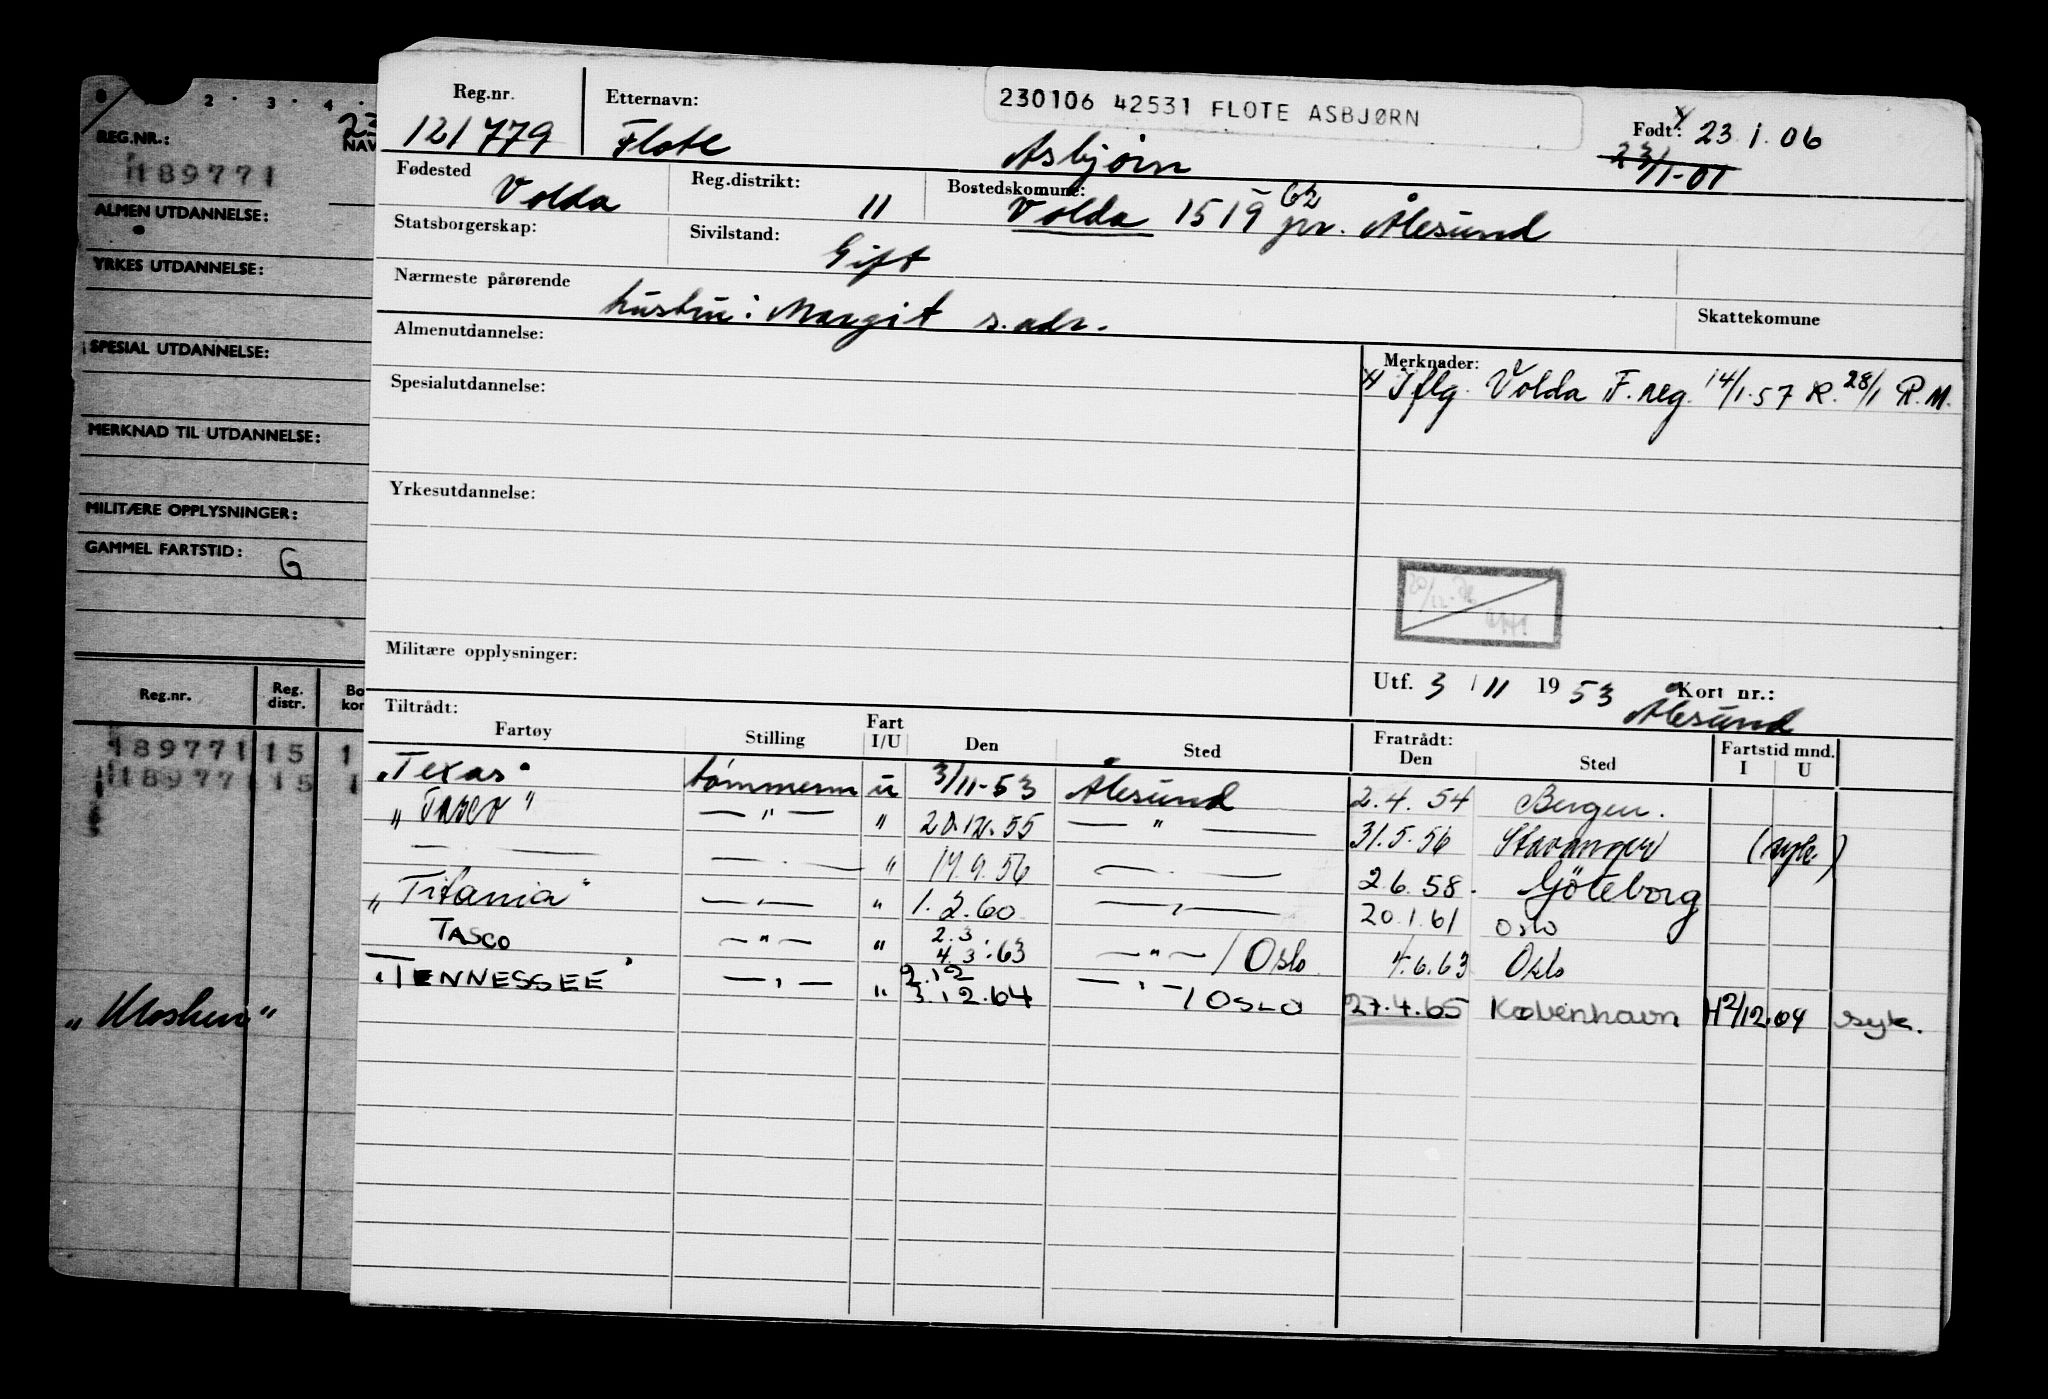 2 · 3 · 4 ·
REG.NR.:
NAV
189771
ALMEN UTDANNELSE:
YRKES UTDANNELSE:
SPESIAL UTDANNELSE:
MERKNAD TIL UTDANNELSE:
MILITÆRE OPPLYSNINGER:
GAMMEL FARTSTID: G
Reg.nr. Reg. distr. Bo kor
189771 15 1
189771 15 1
Reg.nr. Etternavn: 230106 42531 FLOTE ASBJØRN Født: 23.1.06
121779 Flote Asbjørn 23/1-01
Fødested Volda Reg.distrikt: 11 Bostedskomune: Volda 1519 62 pr. Ålesund
Statsborgerskap: Sivilstand: Gift
Nærmeste pårørende hustru: Margit s. adr.
Skattekomune
Almenutdannelse: Merknader:
x) Iflg. Volda F.reg. 14/1.57 R. 28/1 R.M.
Spesialutdannelse:
Yrkesutdannelse:
Militære opplysninger:
Utf. 3/11 1953 Kort nr.:
Ålesund
Tiltrådt: Fratrådt: Fartstid mnd.
Fartøy Stilling Fart I/U Den Sted Den Sted I U
"Texas" tømmerm u 3/11-53 Ålesund 2.4.54 Bergen.
— " — " 20.12.55 — " — 31.5.56 Stavanger (syk.)
— " — — " — " 19.9.56 — " — 2.6.58. Göteborg
"Titania" — " — " 1.2.60 — " — 20.1.61 Oslo
TASCO — " — " 2.3. 4.3.63 — " — / Oslo 4.6.63 Oslo
"TENNESSEE" — " — " 2.12 3.12.64 — " — / OSLO 27.4.65 København H 2/12.64 syk.